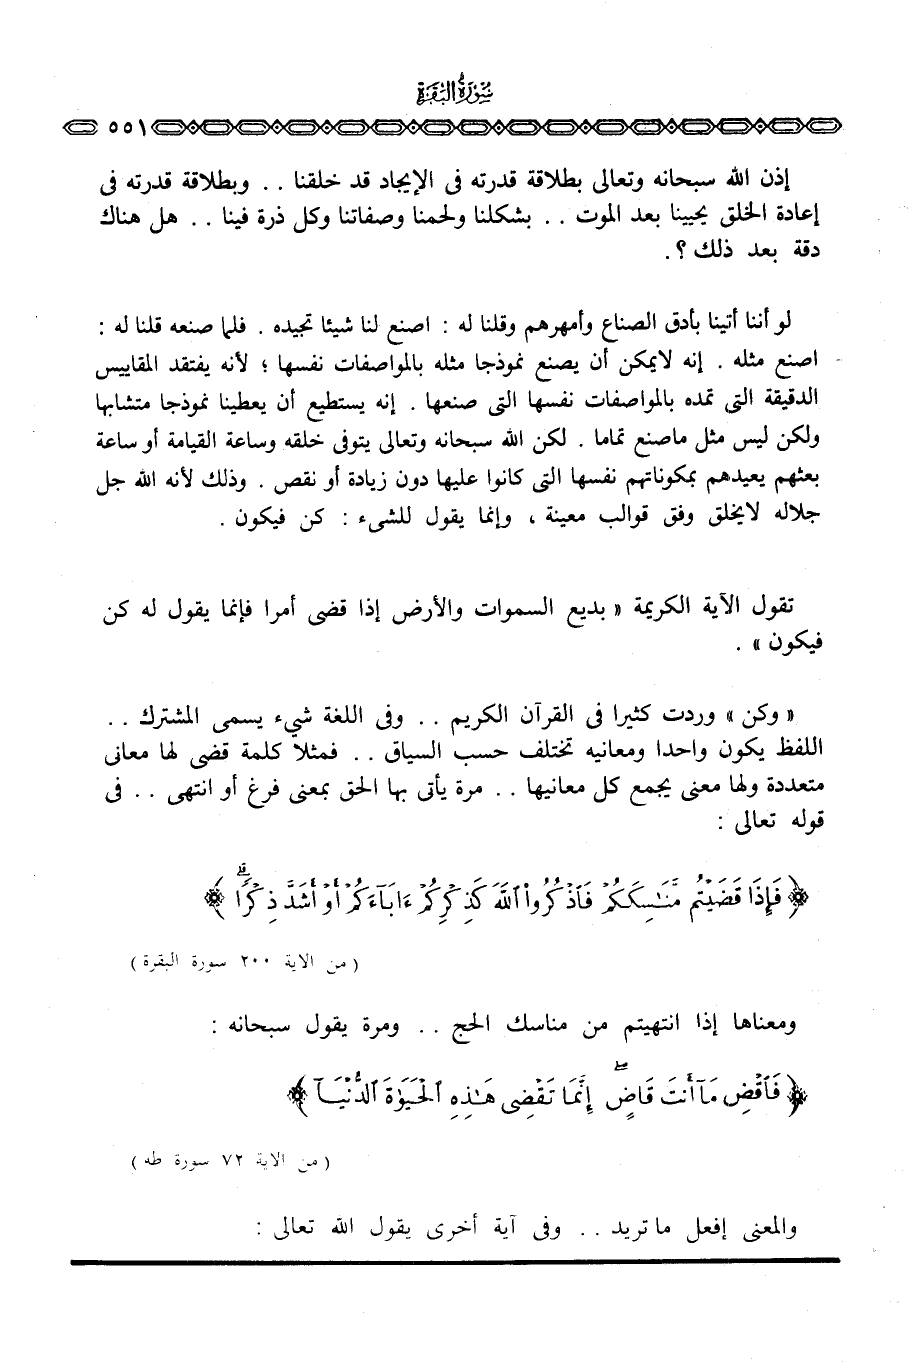 سورة البقرة
٥٥١
إذن الله سبحانه وتعالى بطلاقة قدرته فى الإيجاد قد خلقنا . . وبطلاقة قدرته فى
إعادة الخلق يحيينا بعد الموت . . بشكلنا ولحمنا وصفاتنا وكل ذرة فينا . . هل هناك
دقة بعد ذلك ؟ .
لو أننا أتينا بأدق الصناع وأمهرهم وقلنا له : اصنع لنا شيئا تجيده . فلما صنعه قلنا له :
اصنع مثله . إنه لايمكن أن يصنع نموذجا مثله بالمواصفات نفسها ؛ لأنه يفتقد المقاييس
الدقيقة التى تمده بالمواصفات نفسها التى صنعها . إنه يستطيع أن يعطينا نموذجا متشابها
ولكن ليس مثل ماصنع تماما . لكن الله سبحانه وتعالى يتوفى خلقه وساعة القيامة أو ساعة
بعثهم يعيدهم بمكوناتهم نفسها التى كانوا عليها دون زيادة أو نقص . وذلك لأنه الله جل
جلاله لايخلق وفق قوالب معينة ، وإنما يقول للشىء : كن فيكون .
تقول الآية الكريمة « بديع السموات والأرض إذا قضى أمرا فإنما يقول له كن
فيكون » .
« وكن » وردت كثيرا فى القرآن الكريم . . وفى اللغة شيء يسمى المشترك . .
اللفظ يكون واحدا ومعانيه تختلف حسب السياق . . فمثلا كلمة قضى لها معانى
متعددة ولها معنى يجمع كل معانيها . . مرة يأتى بها الحق بمعنى فرغ أو انتهى . . فى
قوله تعالى :
﴿ فَإِذَا قَضَيْتُم مَّنَٰسِكَكُمْ فَٱذْكُرُوا۟ ٱللَّهَ كَذِكْرِكُمْ ءَابَآءَكُمْ أَوْ أَشَدَّ ذِكْرًا ۗ ﴾
( من الاية ٢٠٠ سورة البقرة )
ومعناها إذا انتهيتم من مناسك الحج . . ومرة يقول سبحانه :
﴿ فَٱقْضِ مَآ أَنتَ قَاضٍ ۖ إِنَّمَا تَقْضِى هَٰذِهِ ٱلْحَيَوٰةَ ٱلدُّنْيَآ ﴾
( من الاية ٧٢ سورة طه )
والمعنى إفعل ما تريد . . وفى آية أخرى يقول الله تعالى :